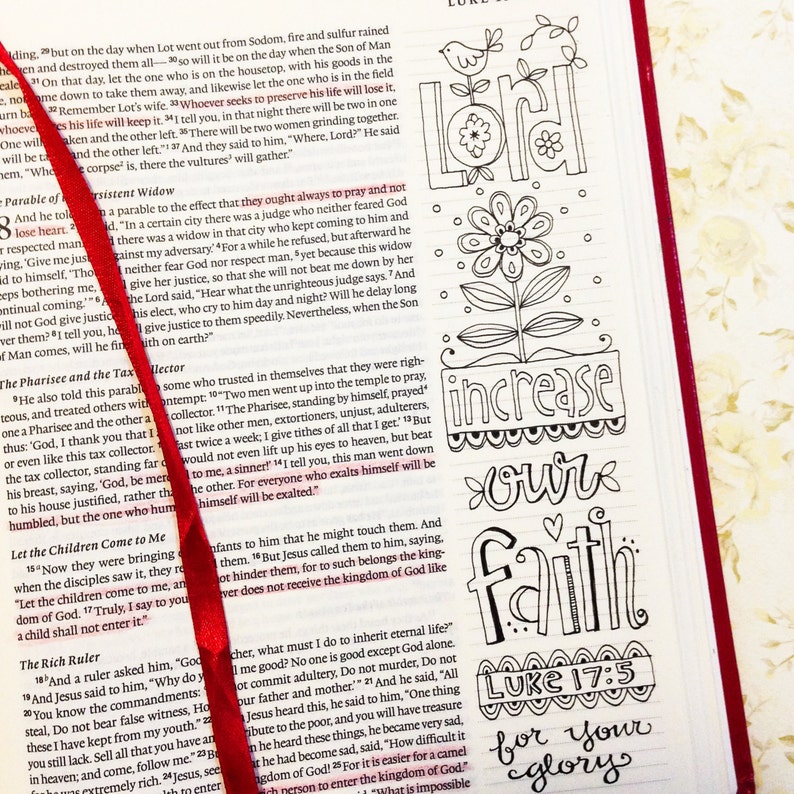 LUKE
lding, 29 but on the day when Lot went out from Sodom, fire and sulfur rained
en and destroyed them all— 30 so will it be on the day when the Son of Man
31 On that day, let the one who is on the housetop, with his goods in the
not come down to take them away, and likewise let the one who is in the field
32 Remember Lot's wife. 33 Whoever seeks to preserve his life will lose it,
his life will keep it. 34 I tell you, in that night there will be two in one
One will taken and the other left. 35 There will be two women grinding together.
will be and the other left." 37 And they said to him, "Where, Lord?" He said
them, "Whe corpse2 is, there the vultures3 will gather."
Parable of the Persistent Widow
And he to a parable to the effect that they ought always to pray and not
lose heart. "In a certain city there was a judge who neither feared God
respected man. there was a widow in that city who kept coming to him and
ying, 'Give me ju against my adversary.' 4 For a while he refused, but afterward he
said to himself, 'Thou neither fear God nor respect man, 5 yet because this widow
eeps bothering me, give her justice, so that she will not beat me down by her
ontinual coming.'" 6 A the Lord said, "Hear what the unrighteous judge says. 7 And
will not God give justice his elect, who cry to him day and night? Will he delay long
ver them? 8 I tell you, he give justice to them speedily. Nevertheless, when the Son
of Man comes, will he fin aith on earth?"
The Pharisee and the Tax Collector
9 He also told this parab some who trusted in themselves that they were righ-
teous, and treated others ontempt: 10 "Two men went up into the temple to pray,
one a Pharisee and the other a collector. 11 The Pharisee, standing by himself, prayed4
thus: 'God, I thank you that I not like other men, extortioners, unjust, adulterers,
or even like this tax collector. fast twice a week; I give tithes of all that I get.' 13 But
the tax collector, standing far o would not even lift up his eyes to heaven, but beat
his breast, saying, 'God, be mer to me, a sinner!' 14 I tell you, this man went down
to his house justified, rather tha the other. For everyone who exalts himself will be
humbled, but the one who hum himself will be exalted."
Let the Children Come to Me
15 Now they were bringing infants to him that he might touch them. And
when the disciples saw it, they re d them. 16 But Jesus called them to him, saying,
"Let the children come to me, an not hinder them, for to such belongs the king-
dom of God. 17 Truly, I say to you ever does not receive the kingdom of God like
a child shall not enter it."
The Rich Ruler
18 And a ruler asked him, "Good cher, what must I do to inherit eternal life?"
19 And Jesus said to him, "Why do y ll me good? No one is good except God alone.
20 You know the commandments: ' ot commit adultery, Do not murder, Do not
steal, Do not bear false witness, Ho our father and mother.'" 21 And he said, "All
these I have kept from my youth." 22 n Jesus heard this, he said to him, "One thing
you still lack. Sell all that you have an tribute to the poor, and you will have treasure
in heaven; and come, follow me." 23 Bu n he heard these things, he became very sad,
was extremely rich. 24 Jesus, see he had become sad, said, "How difficult it
kingdom of God! 25 For it is easier for a camel
ch person to enter the kingdom of God."
said, "What is impossible
Lord
increase
our
faith
LUKE 17:5
for your
glory